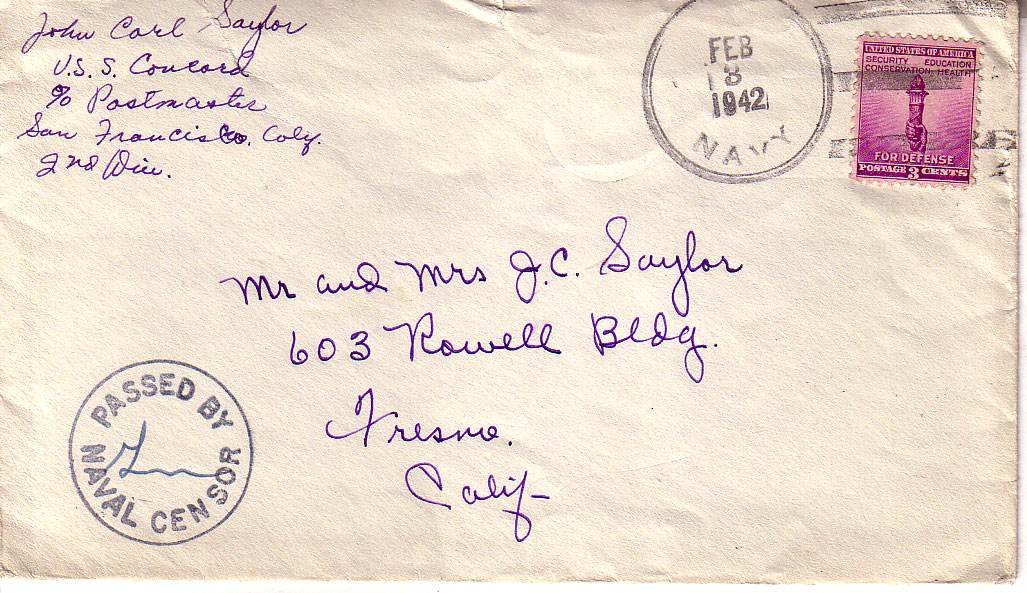 John Carl Saylor
U.S.S. Concord
% Postmaster
San Francisco. Caly.
2nd Div.
FEB
8
1942
NAVY
UNITED STATES OF AMERICA
SECURITY EDUCATION
CONSERVATION HEALTH
FOR DEFENSE
POSTAGE 3 CENTS
Mr and Mrs J.C. Saylor
603 Rowell Bldg.
Fresno.
Calif-
PASSED BY
NAVAL CENSOR